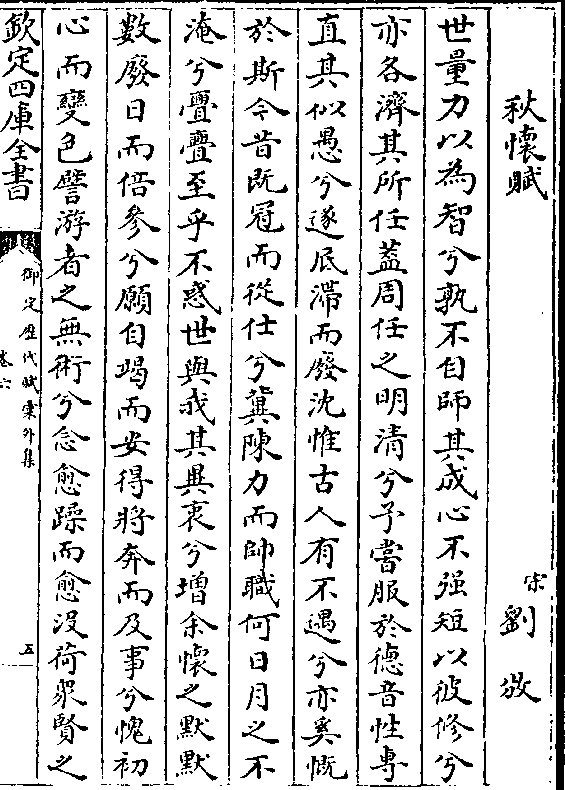 秋懷賦
宋 劉攽
世量力以為智兮孰不自師其成心不强短以彼修兮
亦各濟其所任葢周任之明清兮予嘗服於德音性専
直其似愚兮遂底滯而廢沈惟古人有不遇兮亦奚慨
於斯今昔既冠而從仕兮冀陳力而帥職何日月之不
淹兮亹亹至乎不惑世與我其異衷兮增余懷之默默
數廢日而倍參兮願自竭而安得將奔而及事兮愧初
心而變色譬游者之無術兮念愈躁而愈沒荷衆賢之
欽定四庫全書
御定歴代賦彚外集
卷六
五